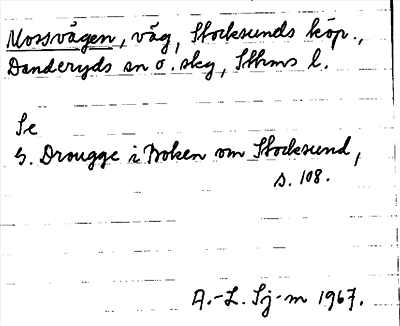 Mossvägen, väg, Stocksunds köp.,
Danderyds sn o. skg, Sthms l.
Se
G. Drougge i Boken om Stocksund,
s. 108.
A.-L. Sj-m 1967.